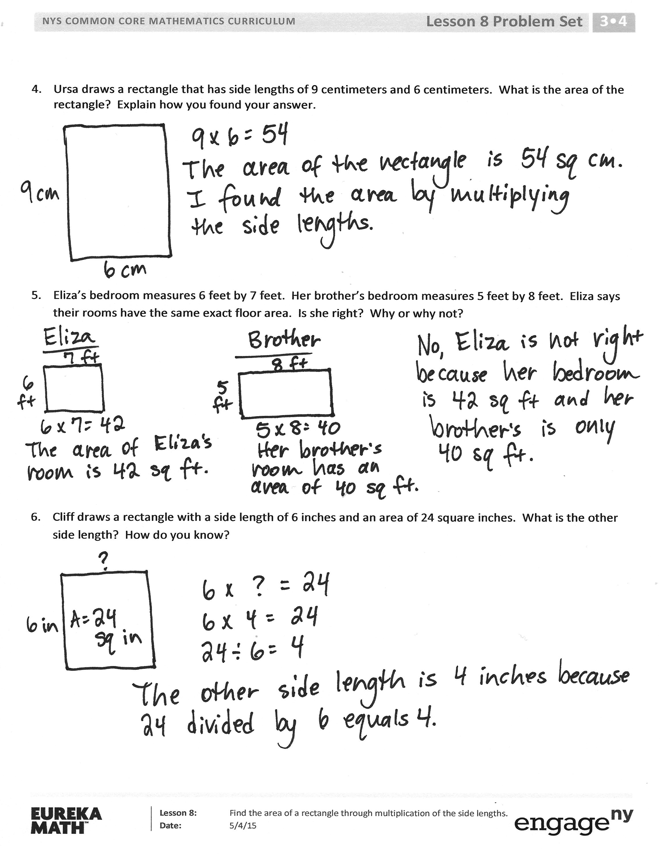 NYS COMMON CORE MATHEMATICS CURRICULUM
Lesson 8 Problem Set 3•4
4. Ursa draws a rectangle that has side lengths of 9 centimeters and 6 centimeters. What is the area of the
rectangle? Explain how you found your answer.
9 x 6 = 54
The area of the rectangle is 54 sq cm.
I found the area by multiplying
the side lengths.
9 cm
6 cm
5. Eliza's bedroom measures 6 feet by 7 feet. Her brother's bedroom measures 5 feet by 8 feet. Eliza says
their rooms have the same exact floor area. Is she right? Why or why not?
Eliza
7 ft
6
ft
6 x 7 = 42
The area of Eliza's
room is 42 sq ft.
Brother
8 ft
5
ft
5 x 8 = 40
Her brother's
room has an
area of 40 sq ft.
No, Eliza is not right
because her bedroom
is 42 sq ft and her
brother's is only
40 sq ft.
6. Cliff draws a rectangle with a side length of 6 inches and an area of 24 square inches. What is the other
side length? How do you know?
?
6 in
A=24
sq in
6 x ? = 24
6 x 4 = 24
24 ÷ 6 = 4
The other side length is 4 inches because
24 divided by 6 equals 4.
EUREKA
MATH™
Lesson 8: Find the area of a rectangle through multiplication of the side lengths.
Date: 5/4/15
engage ny